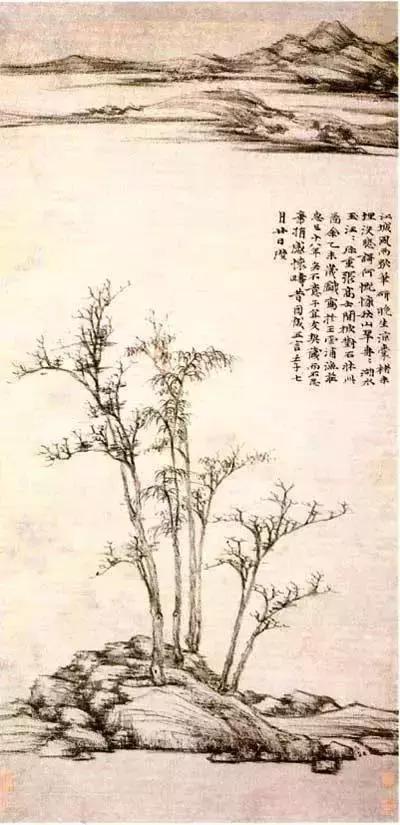 江城風雨歇筆研晚生涼囊楮未
埋没悲歌何慨慷秋山翠冉〻湖水
玉汪〻珎重張高士閒披對石牀此
圖余乙未歲戲寫於王雲浦漁莊
忽已十八年矣不意子宜友契藏而不忍
棄捐感懷疇昔因成五言壬子七
月廿日瓚